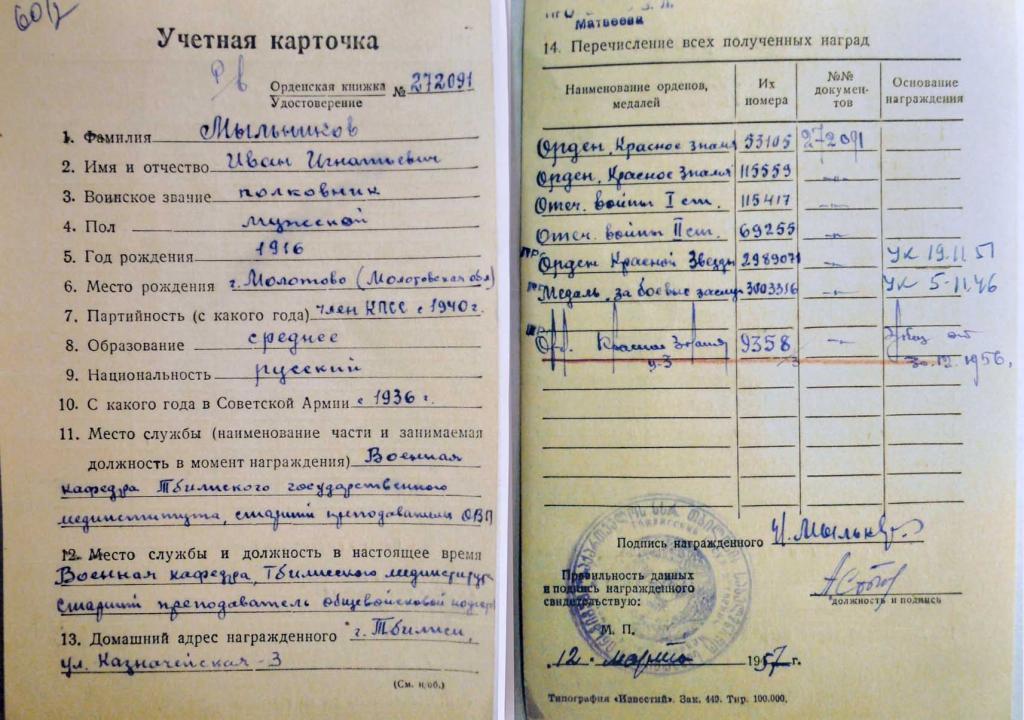 60/2
Учетная карточка
Орденская книжка
Удостоверение № 272091
1. Фамилия Мыльников
2. Имя и отчество Иван Игнатьевич
3. Воинское звание полковник
4. Пол мужской
5. Год рождения 1916
6. Место рождения г. Молотово (Молотовская обл)
7. Партийность (с какого года) член КПСС с 1940 г.
8. Образование среднее
9. Национальность русский
10. С какого года в Советской Армии с 1936 г.
11. Место службы (наименование части и занимаемая
должность в момент награждения) Военная
кафедра Тбилиского государственного
мединститута, старший преподаватель ОВП
12. Место службы и должность в настоящее время
Военная кафедра, Тбилиского
старший преподаватель общевойсковой
13. Домашний адрес награжденного г. Тбилиси,
ул. Казначейская - 3
(См. н/об.)
Матвеева
14. Перечисление всех полученных наград
Наименование орденов, медалей Их номера №№ документов Основание награждения
Орден, Красное знамя 53105 272091
Орден, Красное Знамя 115559 —„—
Отеч. войны I ст. 115417 —„—
Отеч. войны II ст. 69255 —„—
Орден Красной Звезды 2989071 УК 19.11.51
Медаль, за боевые заслуг 3003316 УК 5-11.46
Ор. Красное Знамя 9358 —„— Указ от
30.12.1956.
Подпись награжденного И. Мыльник
Правильность данных
и подпись награжденного
свидетельствую:
должность и подпись
М. П.
12. марта 1957 г.
Типография «Известий». Зак. 449. Тир. 100.000.